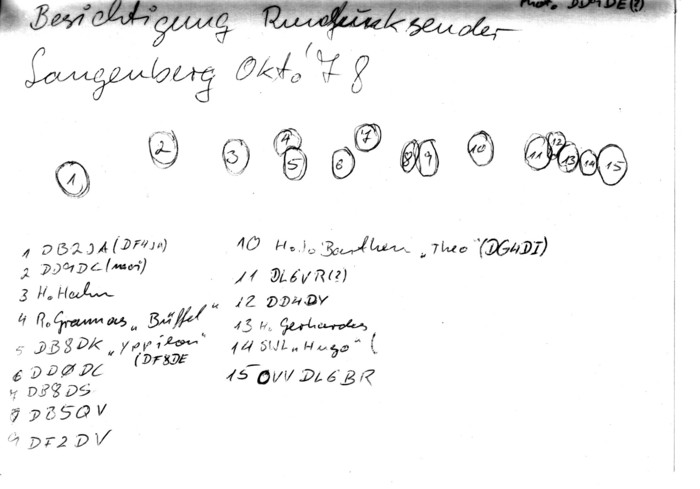 Phot. DD4DE(?)
Besichtigung Rundfunksender
Langenberg Okt.'78
1 2 3 4 5 6 7 8 9 10 11 12 13 14 15
1 DB2JA (DF4JA)
2 DJ9DC
3 H. Hahn
4 R. Grannas „Büffel“
5 DB8DK „Yppilon“
(DF8DE
6 DD0DC
7 DB8DS
8 DB5QV
9 DF2DV
10 H.J. Barthen „Theo“ (DG4DI)
11 DL6VR(?)
12 DD4DY
13 H. Gerhardes
14 SWL „Hugo“ (
15 OVV DL6BR